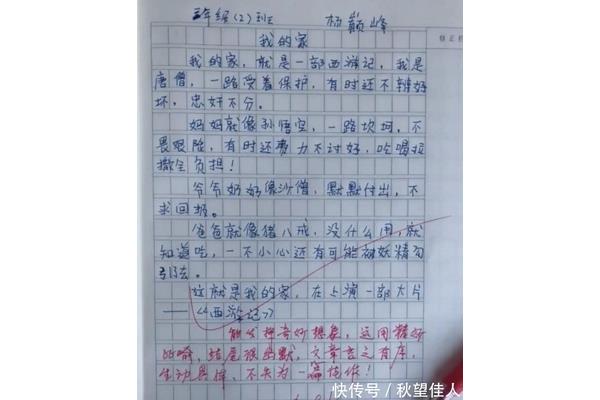 三年级(2)班 杨巅峰
我的家
我的家，就是一部西游记，我是
唐僧，一路受着保护，有时还不辨好
坏，忠奸不分。
妈妈就像孙悟空，一路坎坷，不
畏艰险，有时还费力不讨好，吃喝拉
撒全负担！
爷爷奶奶像沙僧，默默付出，不
求回报。
爸爸就像猪八戒，没什么用，就
知道吃，一不小心还有可能被妖精勾
引去。
这就是我的家，在上演一部大片
——《西游记》
能发挥奇妙想象，运用精妙
比喻，结尾很幽默，文章言之有序，
生动具体，不失为一篇佳作！
快传号 / 秋望佳人